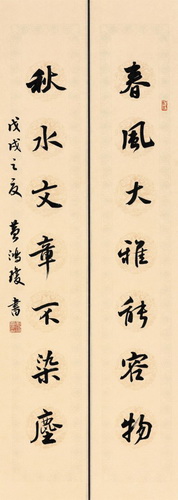 春風大雅能容物
秋水文章不染塵
戊戌之夏 黄鴻瓊書